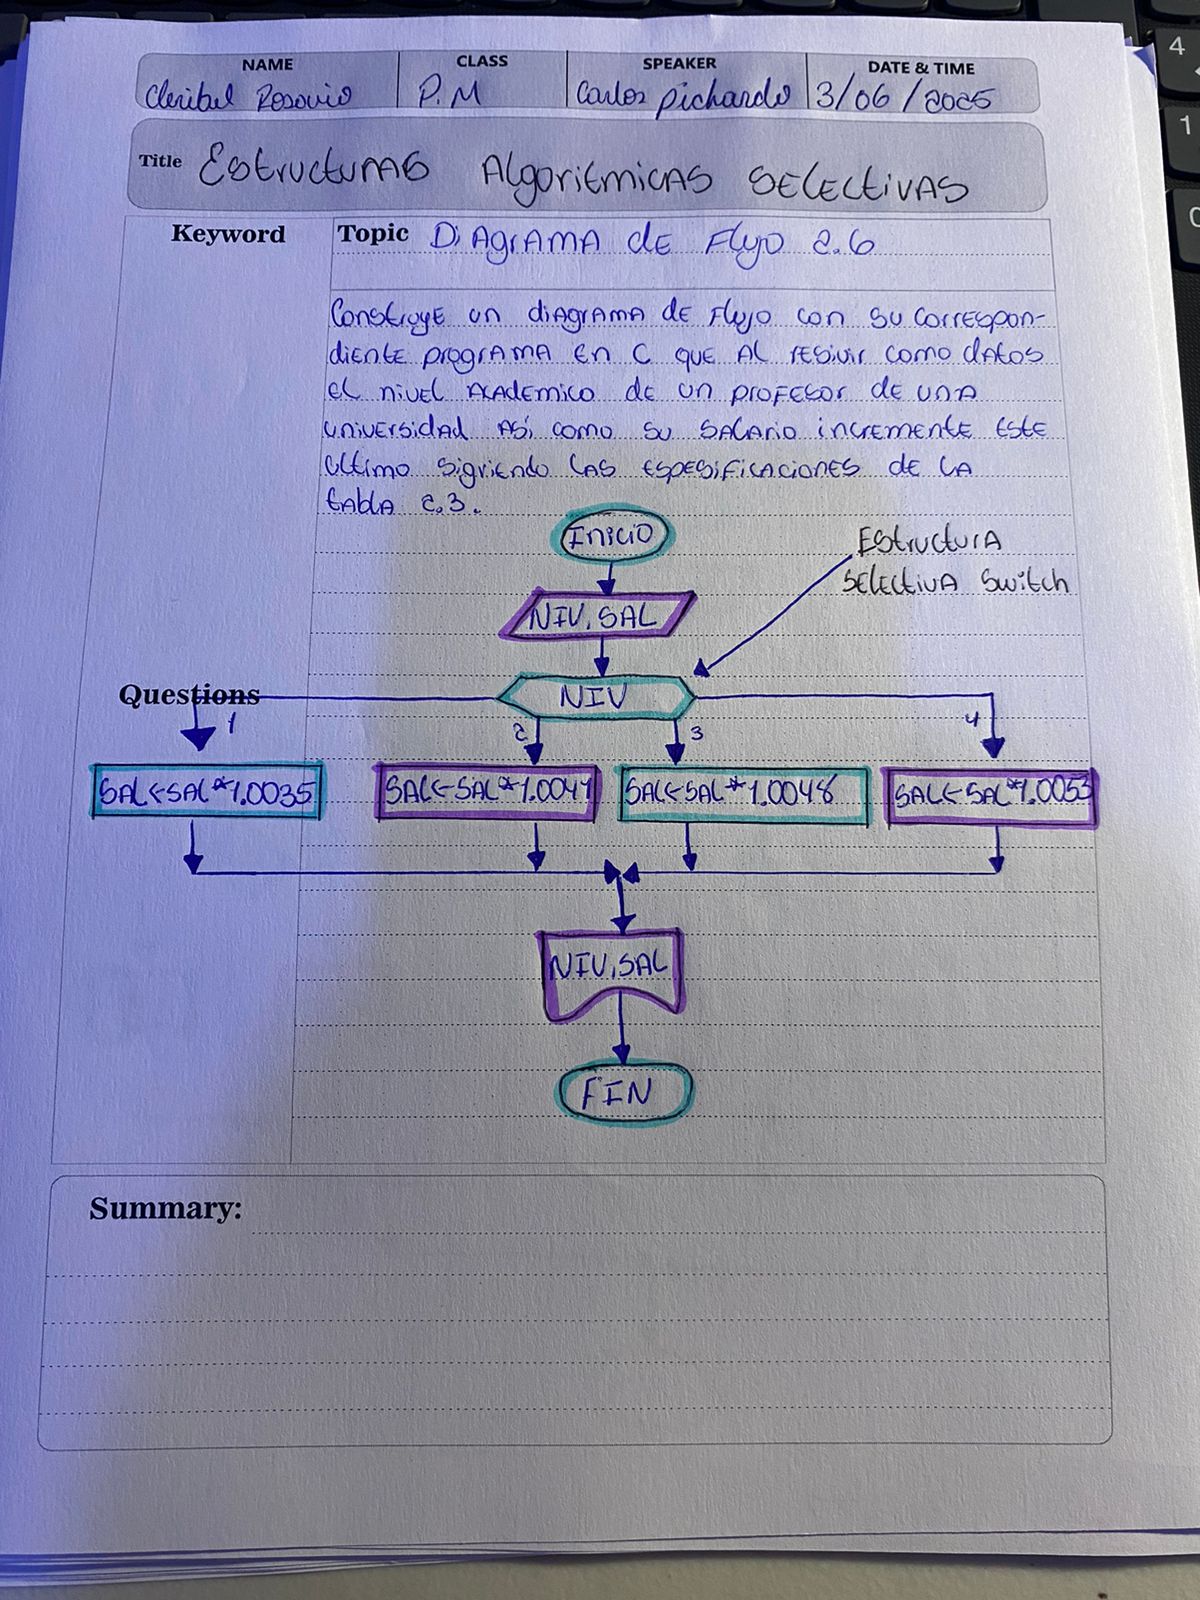 NAME CLASS SPEAKER DATE & TIME
Cleribel Rosario P.M Carlos pichardo 3/06/2025
Title Estructuras Algoritmicas selectivas
Keyword
Topic Diagrama de Flujo 2.6
Construye un diagrama de Flujo con su correspon-
diente programa en C que al resivir como datos
el nivel academico de un profesor de una
universidad Así como su salario incremente este
ultimo sigriendo las espesificaciones de la
tabla 2.3.
Inicio
Estructura
selectiva switch
NIV, SAL
Questions
NIV
1 2 3 4
SAL←SAL*1.0035 SAL←SAL*1.0041 SAL←SAL*1.0048 SAL←SAL*1.0053
NIV, SAL
FIN
Summary:
4
1